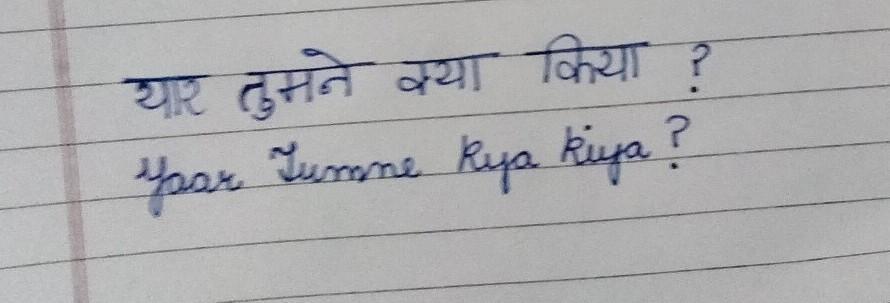 यार तुमने क्या किया ?
Yaar Tumne Kya kiya ?